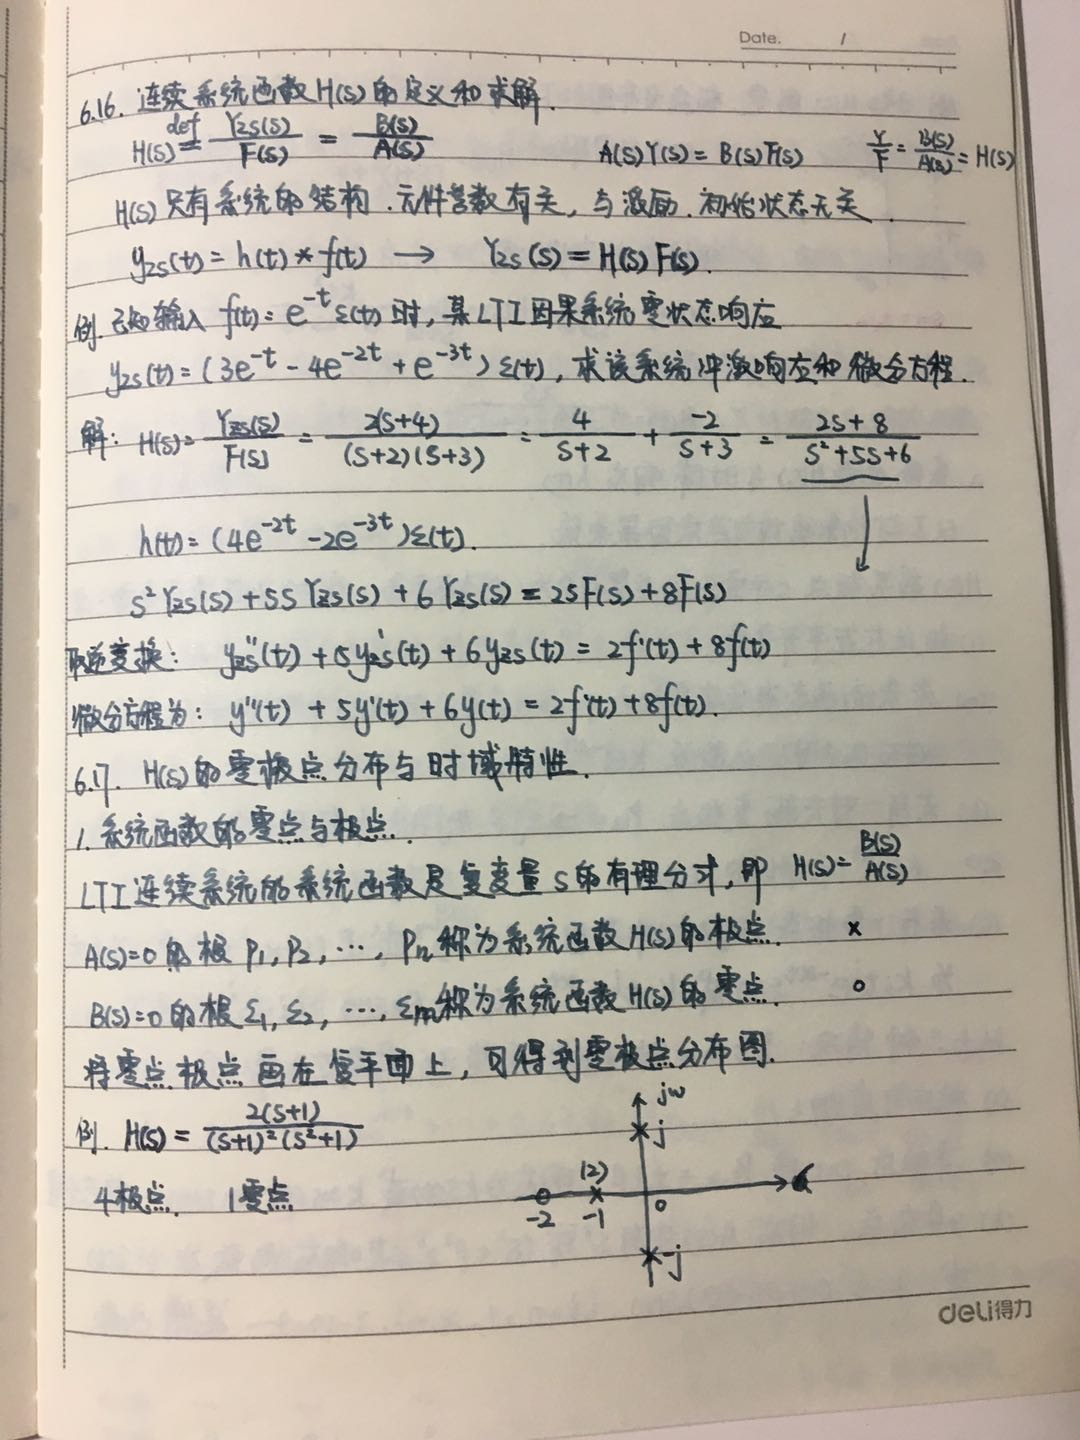 Date. /
6.16. 连续系统函数H(s)的定义和求解.
H(s) def= Yzs(s)/F(s) = B(s)/A(s) A(s)Y(s) = B(s)F(s) Y/F = B(s)/A(s) = H(s)
H(s)只有系统的结构.元件常数有关,与激励.初始状态无关
yzs(t) = h(t) * f(t) → Yzs(s) = H(s)F(s).
例.已知输入 f(t) = e^-t ε(t)时,某LTI因果系统零状态响应
yzs(t) = (3e^-t - 4e^-2t + e^-3t) ε(t), 求该系统冲激响应和微分方程.
解: H(s) = Yzs(s)/F(s) = 2(s+4)/(s+2)(s+3) = 4/s+2 + -2/s+3 = 2s+8/s²+5s+6
h(t) = (4e^-2t - 2e^-3t)ε(t).
s²Yzs(s) + 5sYzs(s) + 6Yzs(s) = 2sF(s) + 8F(s)
取逆变换: yzs''(t) + 5yzs'(t) + 6yzs(t) = 2f'(t) + 8f(t)
微分方程为: y''(t) + 5y'(t) + 6y(t) = 2f'(t) + 8f(t).
6.17. H(s)的零极点分布与时域特性.
1.系统函数的零点与极点.
LTI连续系统的系统函数是复变量s的有理分式,即 H(s) = B(s)/A(s)
A(s)=0的根 p1, p2, ···, pn称为系统函数H(s)的极点. ×
B(s)=0的根 ε1, ε2, ···, εm称为系统函数H(s)的零点. o
将零点.极点画在复平面上,可得到零极点分布图.
例. H(s) = 2(s+1)/(s+1)²(s²+1)
jw
j
4极点. 1零点
(2)
-2 -1 0
-j
deli得力